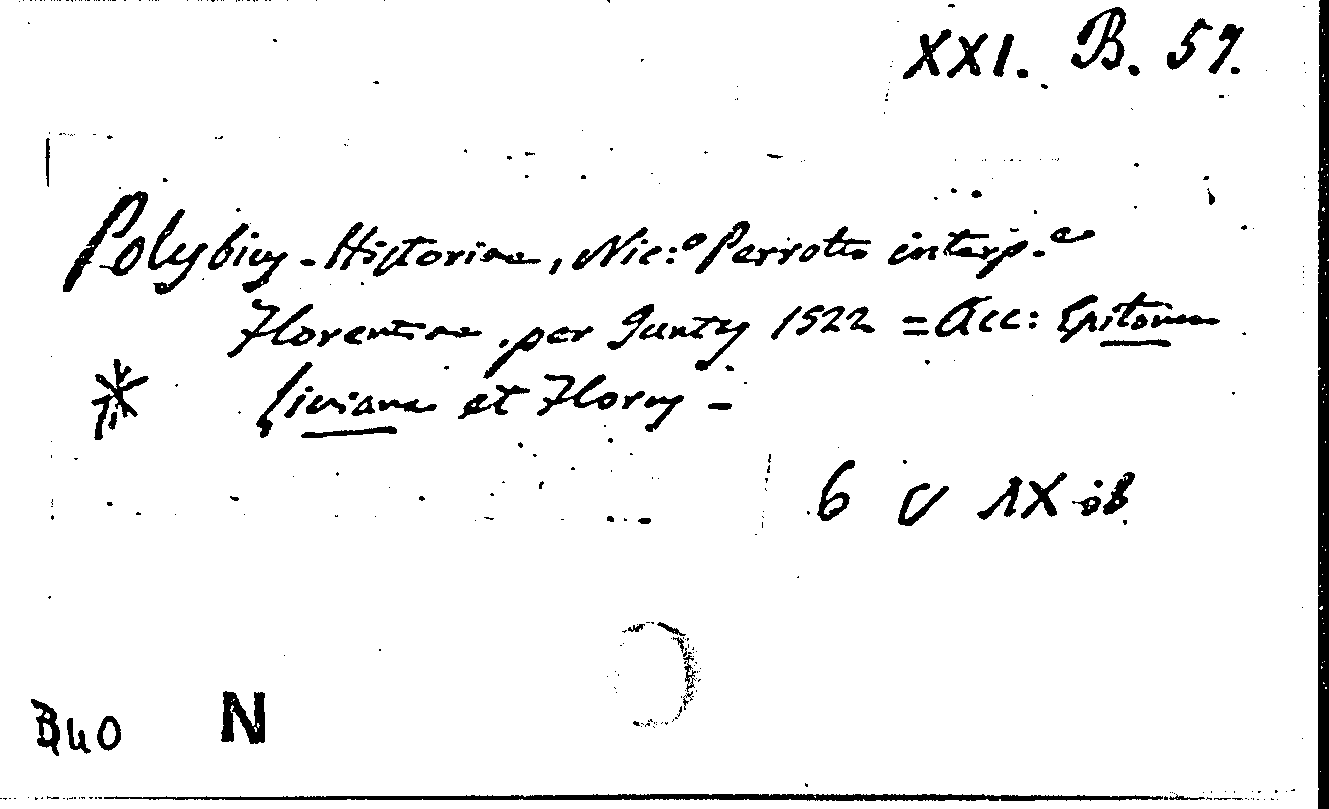 XXI. B. 57.
Polybius - Historiae, Nic:º Perrotto interp.e
Florentiae, per Juntas 1522 = Acc: Epitome
Liviana et Florus -
6 V IX
B40 N